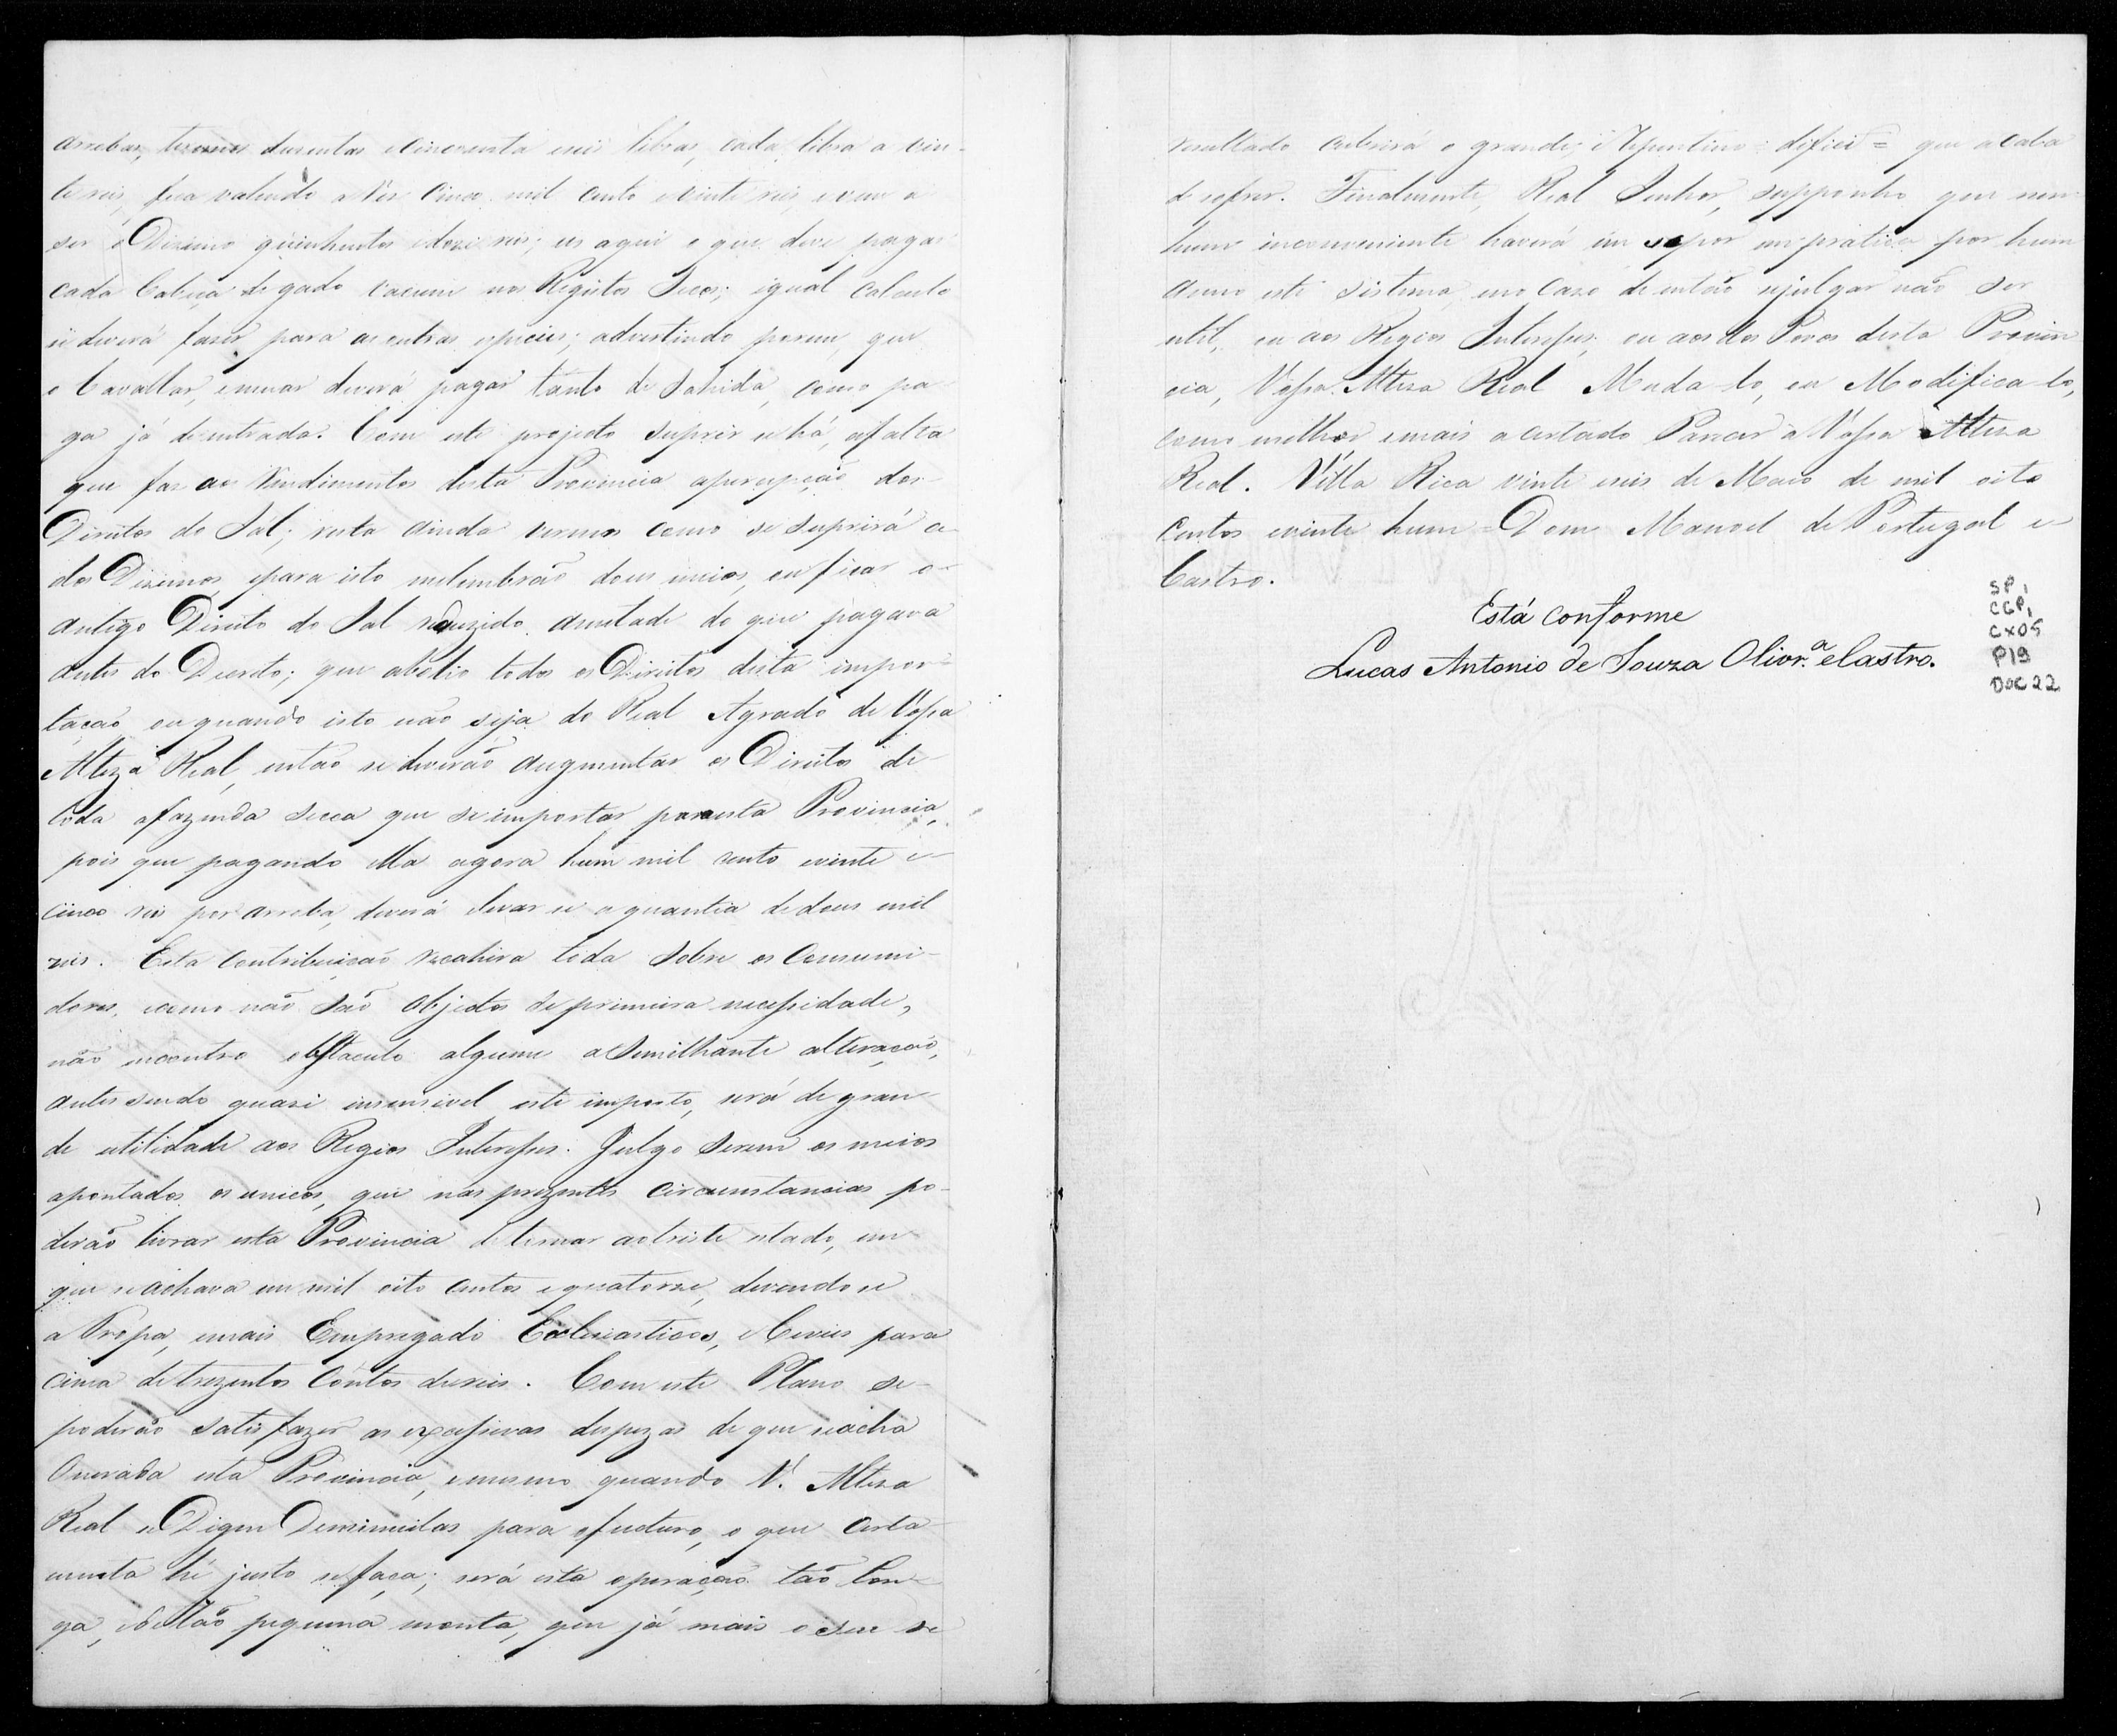 arrobas, temos duzentas ecincoenta eseis libras, cada libra a vin-
te reis, fica valendo a Rêz cinco mil cento evinte reis, evem a
ser o Dizimo quinhentos edoze reis; eis aqui o que deve pagar
cada Cabeça de gado vacum nos Registos Secos; igual calculo
se deverá fazer para as outras especies; advertindo porem, que
o Cavallar, emuar deverá pagar tanto de Sahida, como pa-
ga já de entrada. Com este projecto suprir se há, afalta
que faz aos Rendimentos desta Provincia apercepção dos
Direitos do Sal; resta ainda vermos como se suprirá a
dos Dizimos, epara isto melembrão dous meios, ou ficar o
antigo Direito do Sal reduzido ametade do que pagava
antes do Decreto, que abolio todos os Direitos desta impor-
tação ou quando isto não seja do Real Agrado de Vossa
Alteza Real, então se deverão augmentar os Direitos de
toda afazenda secca que se importar para esta Provincia,
pois que pagando Ella agora hum mil cento evinte e
cinco reis por arroba, deverá elevar se a quantia de dous mil
reis. Esta Contribuição recahira toda Sobre os Consumi-
dores, ecomo não são objectos de primeira necessidade,
não encontro obstaculo algum a Semilhante alteração,
antes sendo quazi insensivel este imposto, será de gran-
de utilidade aos Regios Interesses. Julgo Serem os meios
apontados os unicos, que nas prezentes circumstancias po-
derão livrar esta Provincia de tornar ao triste estado, em
que se achava em mil oito centos equatorze, devendo se
a Tropa, emais Empregados Ecclesiasticos, e Civeis para
cima de trezentos Contos de reis. Com este Plano se
poderão satisfazer as excessivas despezas de que se acha
Onerada esta Provincia, emesmo quando V. Alteza
Real se Digne Deminuilas para ofucturo, o que certa-
mente hé justo se faça; será esta operação tão lon-
ga, e de tão pequena monta, que já mais o seu re
resultado cubrirá o grande, e Repentino = dificit = que acaba
de sofrer. Finalmente, Real Senhor, supponho que nen-
hum inconveniente haverá em se por em pratica por hum
anno este Sistema, e no Cazo de então sejulgar não ser
util, ou aos Regios Interesses, ou aos dos Povos desta Provin
cia, Vossa Alteza Real Muda-lo, ou Modifica-lo,
como milhor emais acertado Parecer a Vossa Alteza
Real. Villa Rica vinte eseis de Maio de mil oito
centos evinte hum = Dom Manoel de Portugal e
Castro.
Está conforme
Lucas Antonio de Souza Olivr.ª eCastro.
SP,
CGP,
CX05
P19
DOC 22